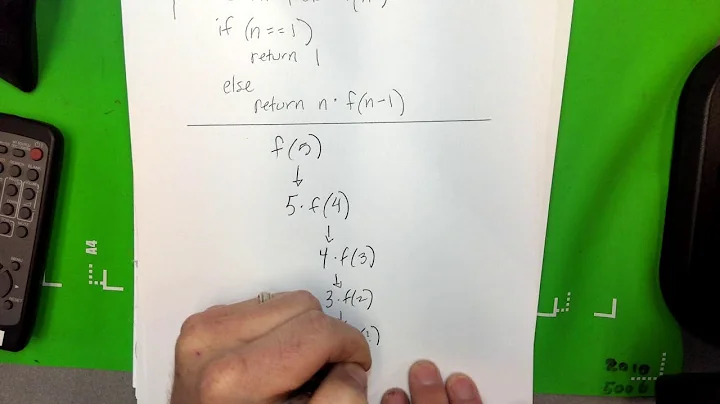 if (n==1)
return 1
else
return n · f(n-1)
f(5)
5 · f(4)
4 · f(3)
3 · f(2)
A4
2010